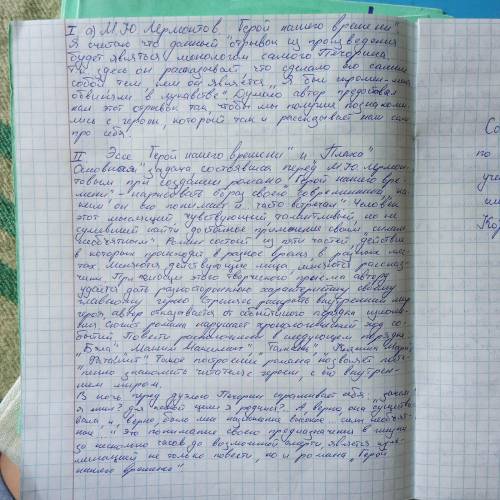 I а) М.Ю. Лермонтов "Герой нашего времени"
Я считаю что данный отрывок из произведения
будет являться монологом самого Печорина.
здесь он рассказывает что сделало его самим
собой тем кем он является. "Я был скромен - меня
обвиняли в лукавстве". Думаю автор предоставил
нам этот отрывок так чтобы мы получше познакоми-
лись с героем, который там и рассказывает нам сам
про себя.
II Эссе "Герой нашего времени" и
Основная задача состоявшая перед М.Ю. Лермон-
товым при создании романа "Герой нашего вре-
мени" - нарисовать образ своего "современника, ка-
ким он его понимает и часто встречал". Человек
этот мыслящий, чувствующий, талантливый, но не
сумевший найти достойное применение своим "силам
необъятным". Роман состоит из пяти частей, действие
в которых происходит в разное время, в разных мес-
тах. Меняются действующие лица, меняются рассказ-
чики. При помощи этого творческого приема автору
удается дать разностороннюю характеристику своему
главному герою. Стремясь раскрыть внутренний мир
героя, автор отказывается от обычного порядка изложе-
ния. Сюжет романа нарушает хронологический ход со-
бытий. Повести расположены в следующем порядке:
"Бэла", "Максим Максимыч", "Тамань", "Княжна Мэри",
"Фаталист". Такое построение романа позволяет посте-
пенно знакомить читателя с героем, с его внутрен-
нем миром.
В ночь перед дуэлью Печорин спрашивает себя: "зачем
я жил? для какой цели я родился?.. А верно, она существо-
вала, и, верно, было мне назначение высокое... силы необъят-
ные..." Это понимание своего предназначения в жизни
за несколько часов до возможной смерти является куль-
минацией не только повести, но и романа "Герой
нашего времени".
С
по
уче
им
Кор